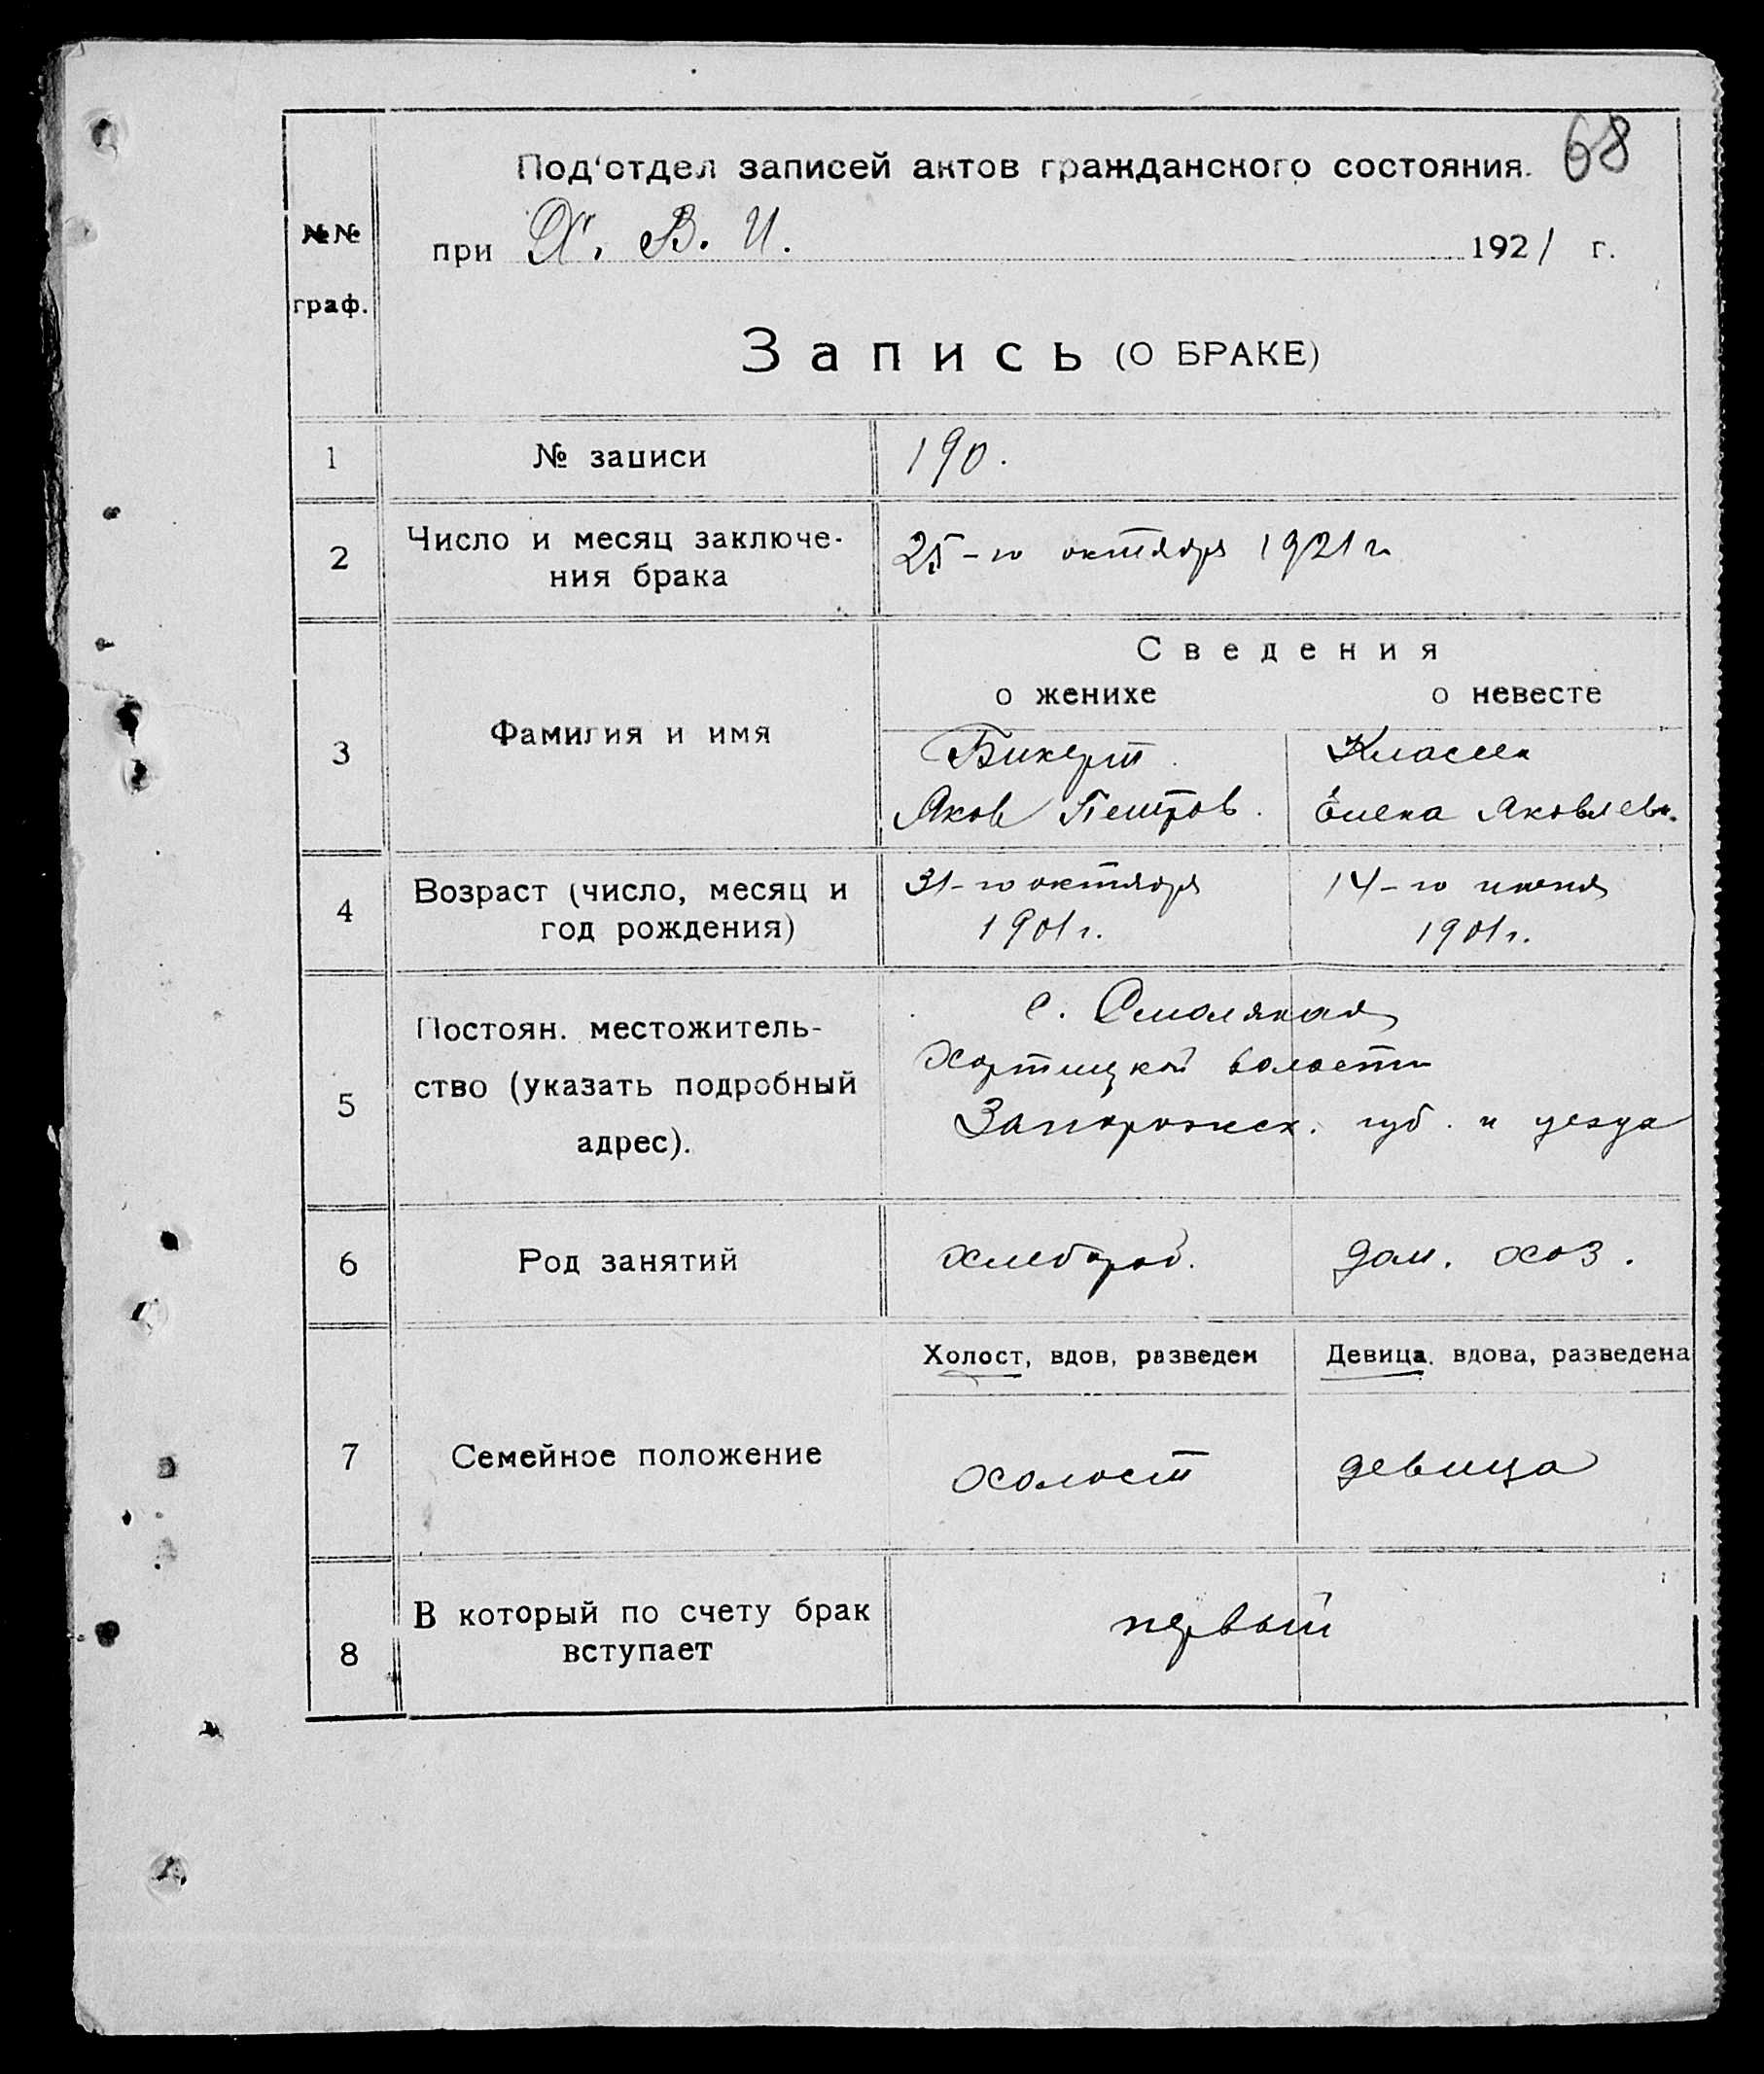 68
Под‘отдел записей актов гражданского состояния.
№№ граф.
при Х. В. И. 1921 г.
Запись (О БРАКЕ)
1 № записи 190.
2 Число и месяц заключе-
ния брака
25-го октября 1921 г.
Сведения
о женихе о невесте
3 Фамилия и имя
Бикерт Классен
Яков Петров. Елена Яковлевн.
4 Возраст (число, месяц и
год рождения)
31-го октября 14-го
1901 г. 1901 г.
5 Постоян. местожитель-
ство (указать подробный
адрес).
с. Смоляная
Хортицкой волости
Запорожск. губ. и уезда
6 Род занятий хлебороб. дом. хоз.
Холост, вдов, разведен Девица, вдова, разведена
7 Семейное положение холост девица
8 В который по счету брак
вступает
первый